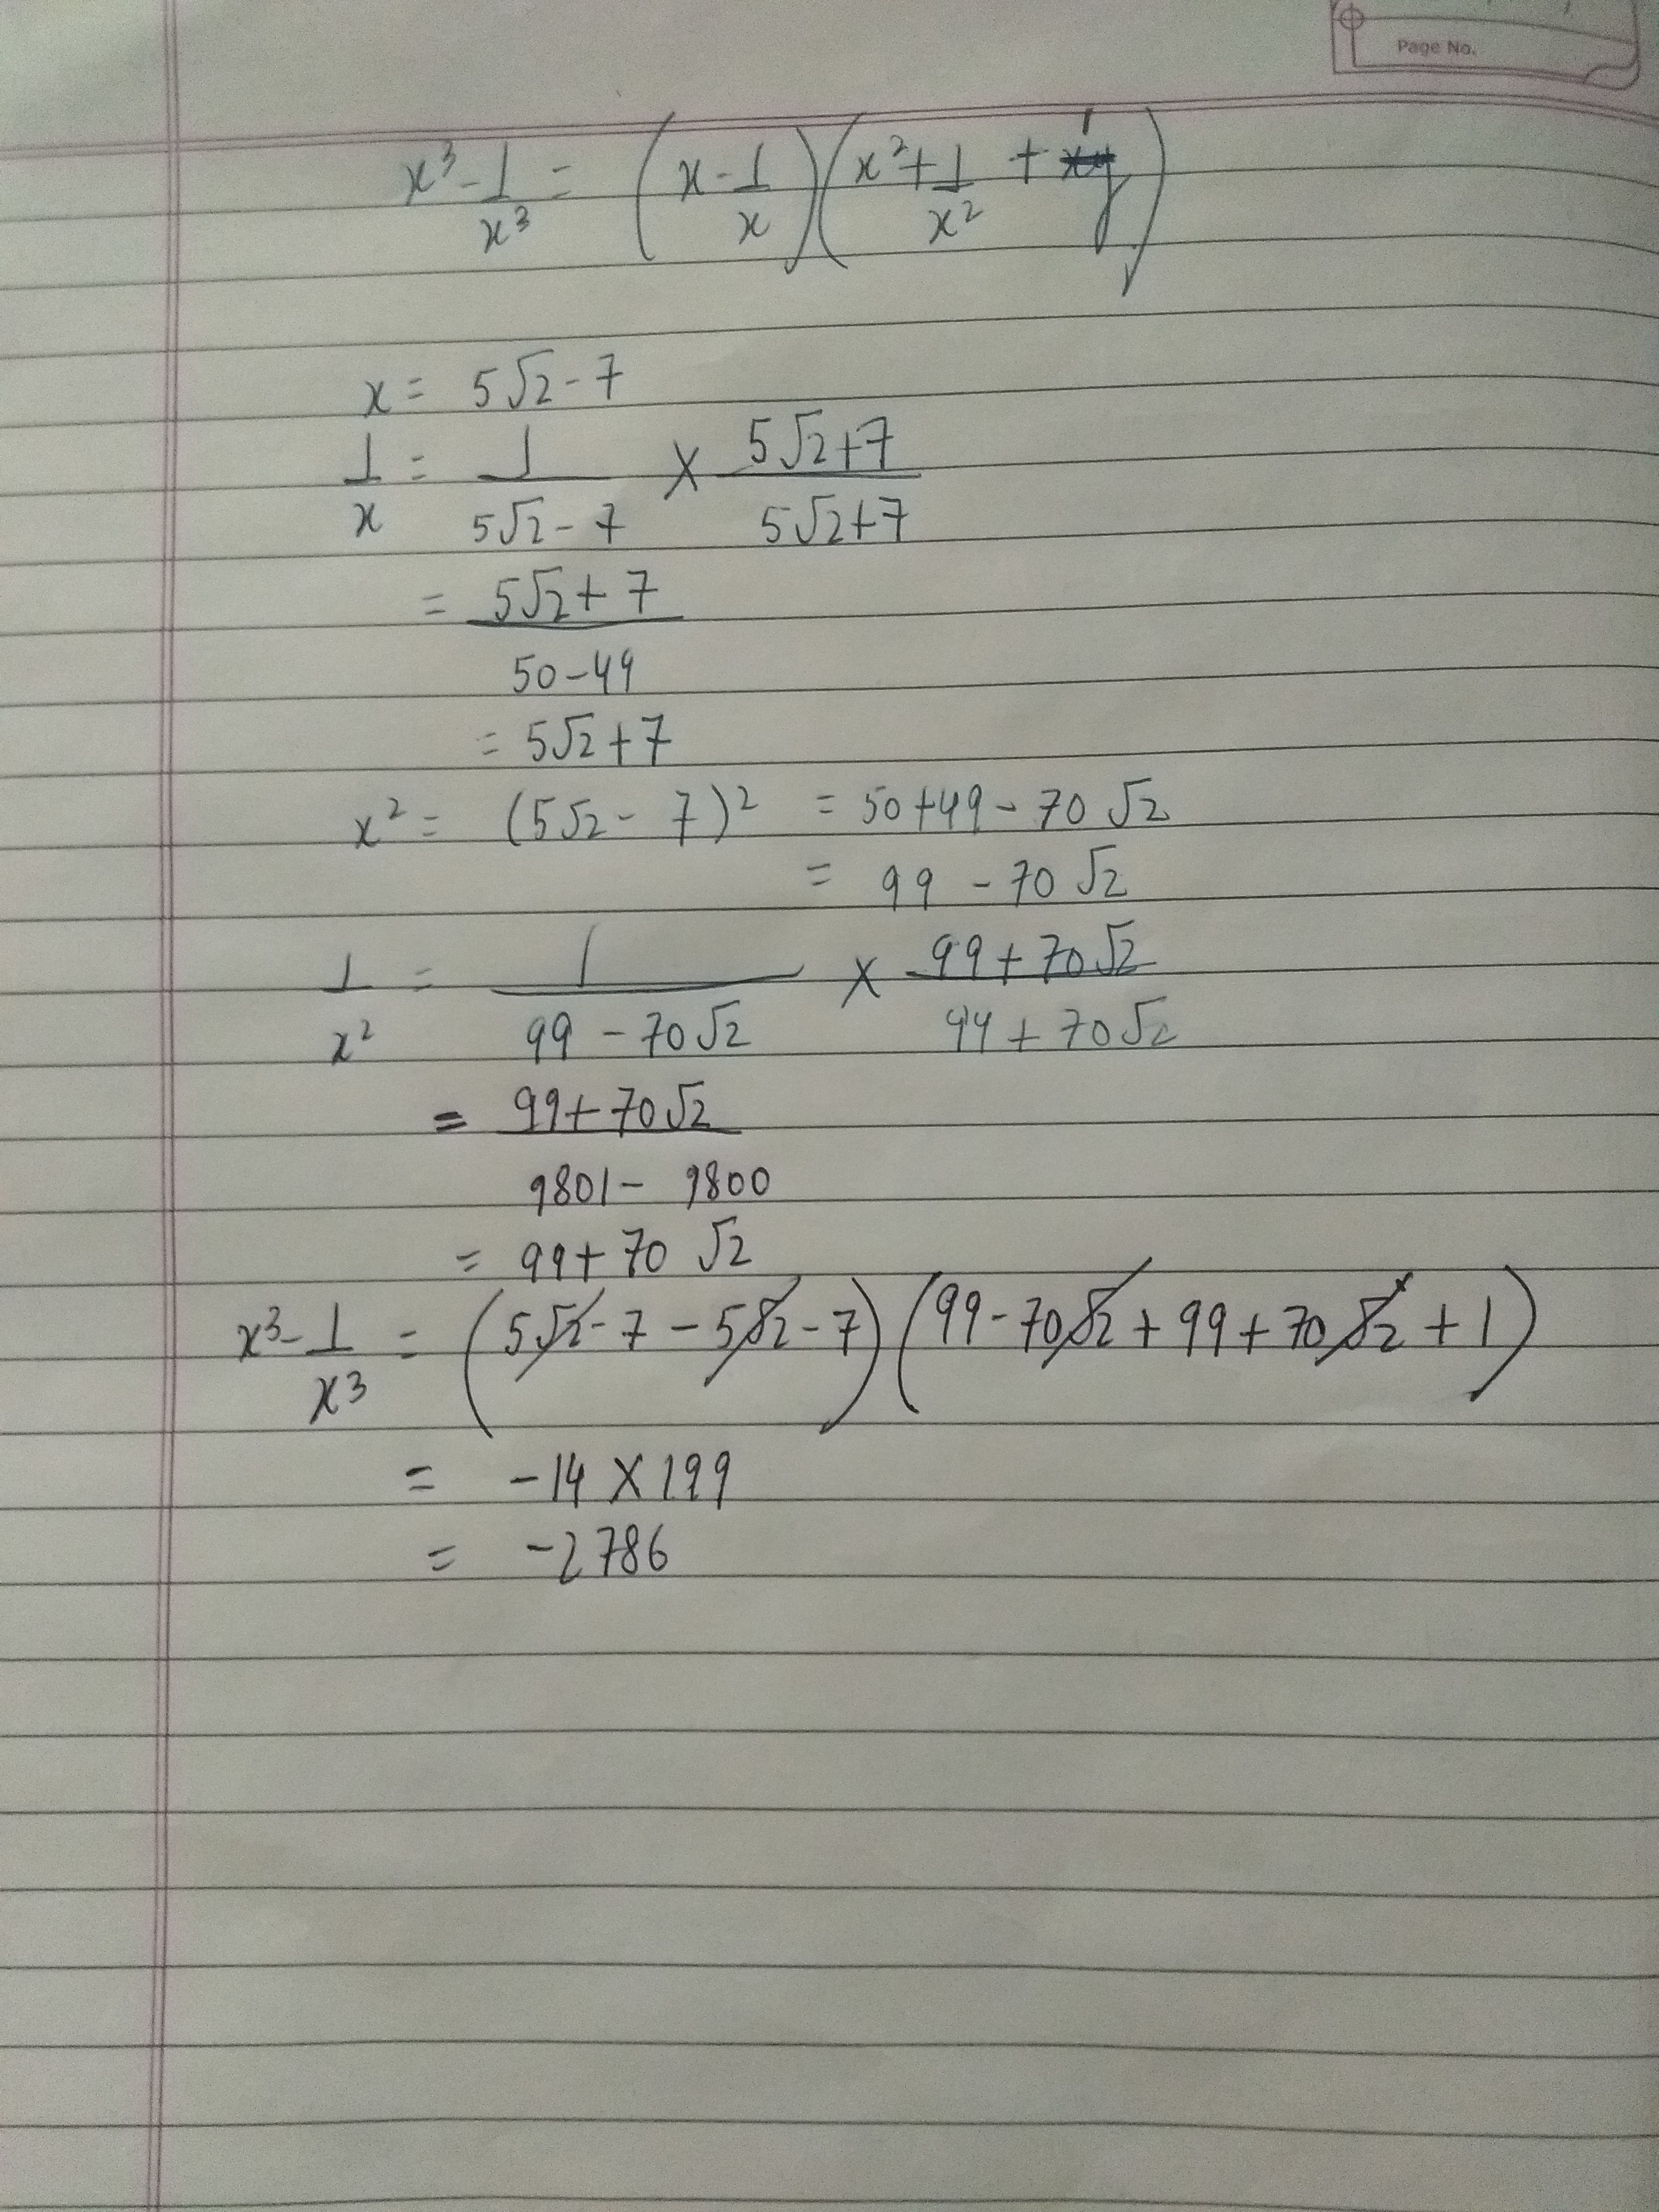 Page No.
x³ - 1/x³ = (x - 1/x)(x² + 1/x² + 1)
x = 5√2 - 7
1/x = 1/(5√2 - 7) × (5√2+7)/(5√2+7)
= (5√2 + 7)/(50 - 49)
= 5√2 + 7
x² = (5√2 - 7)² = 50+49 - 70√2
= 99 - 70√2
1/x² = 1/(99 - 70√2) × (99 + 70√2)/(99 + 70√2)
= (99 + 70√2)/(9801 - 9800)
= 99 + 70√2
x³ - 1/x³ = (5√2 - 7 - 5√2 - 7)(99 - 70√2 + 99 + 70√2 + 1)
= -14 × 199
= -2786